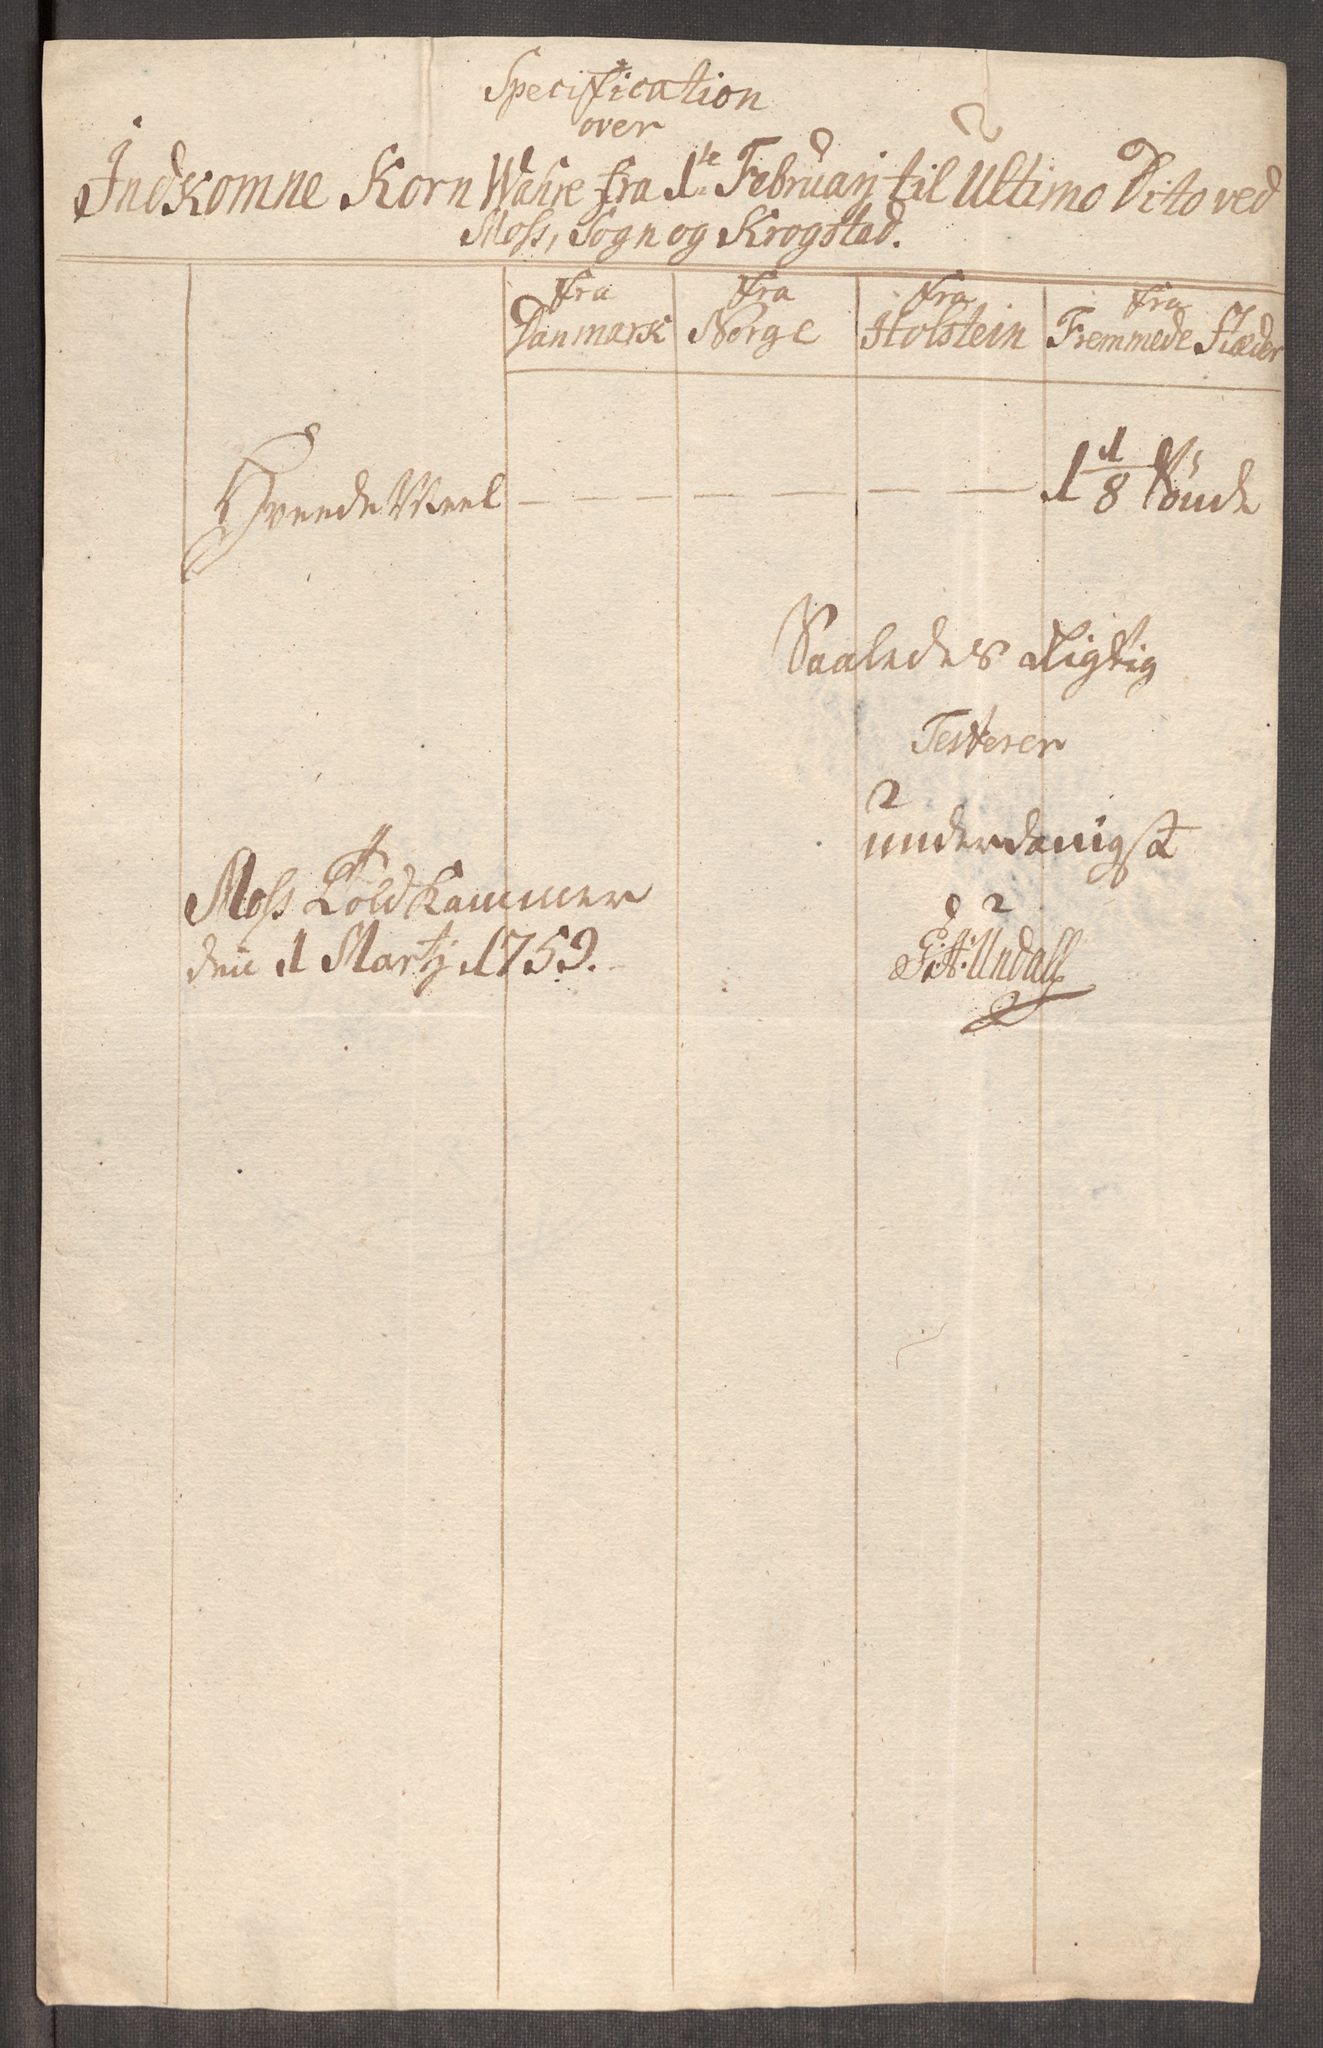 Specification
over
Indkomne Korn Wahre fra 1te Februarij til Ultimo Dito ved
Moss, Sogn og Krogstad.
fra Danmark fra Norge fra Holstein fra Fremmede Stæder
Hveede Meel — — — — — — 1 1/8 Tönde
Saaledes Rigtig
Testerer
underdanigst
Moss Told Kammer
den 1 Martj 1759.
Undall